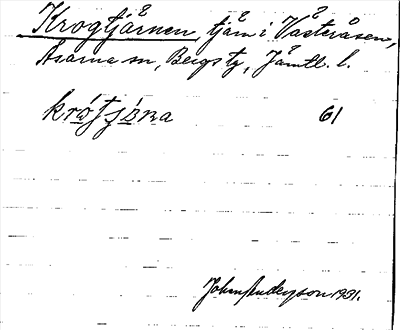 Krogtjärnen, tjärn i Västeråsen,
Åsarna sn, Bergs tg, Jämtl. l.
61
John Anderson 1931.